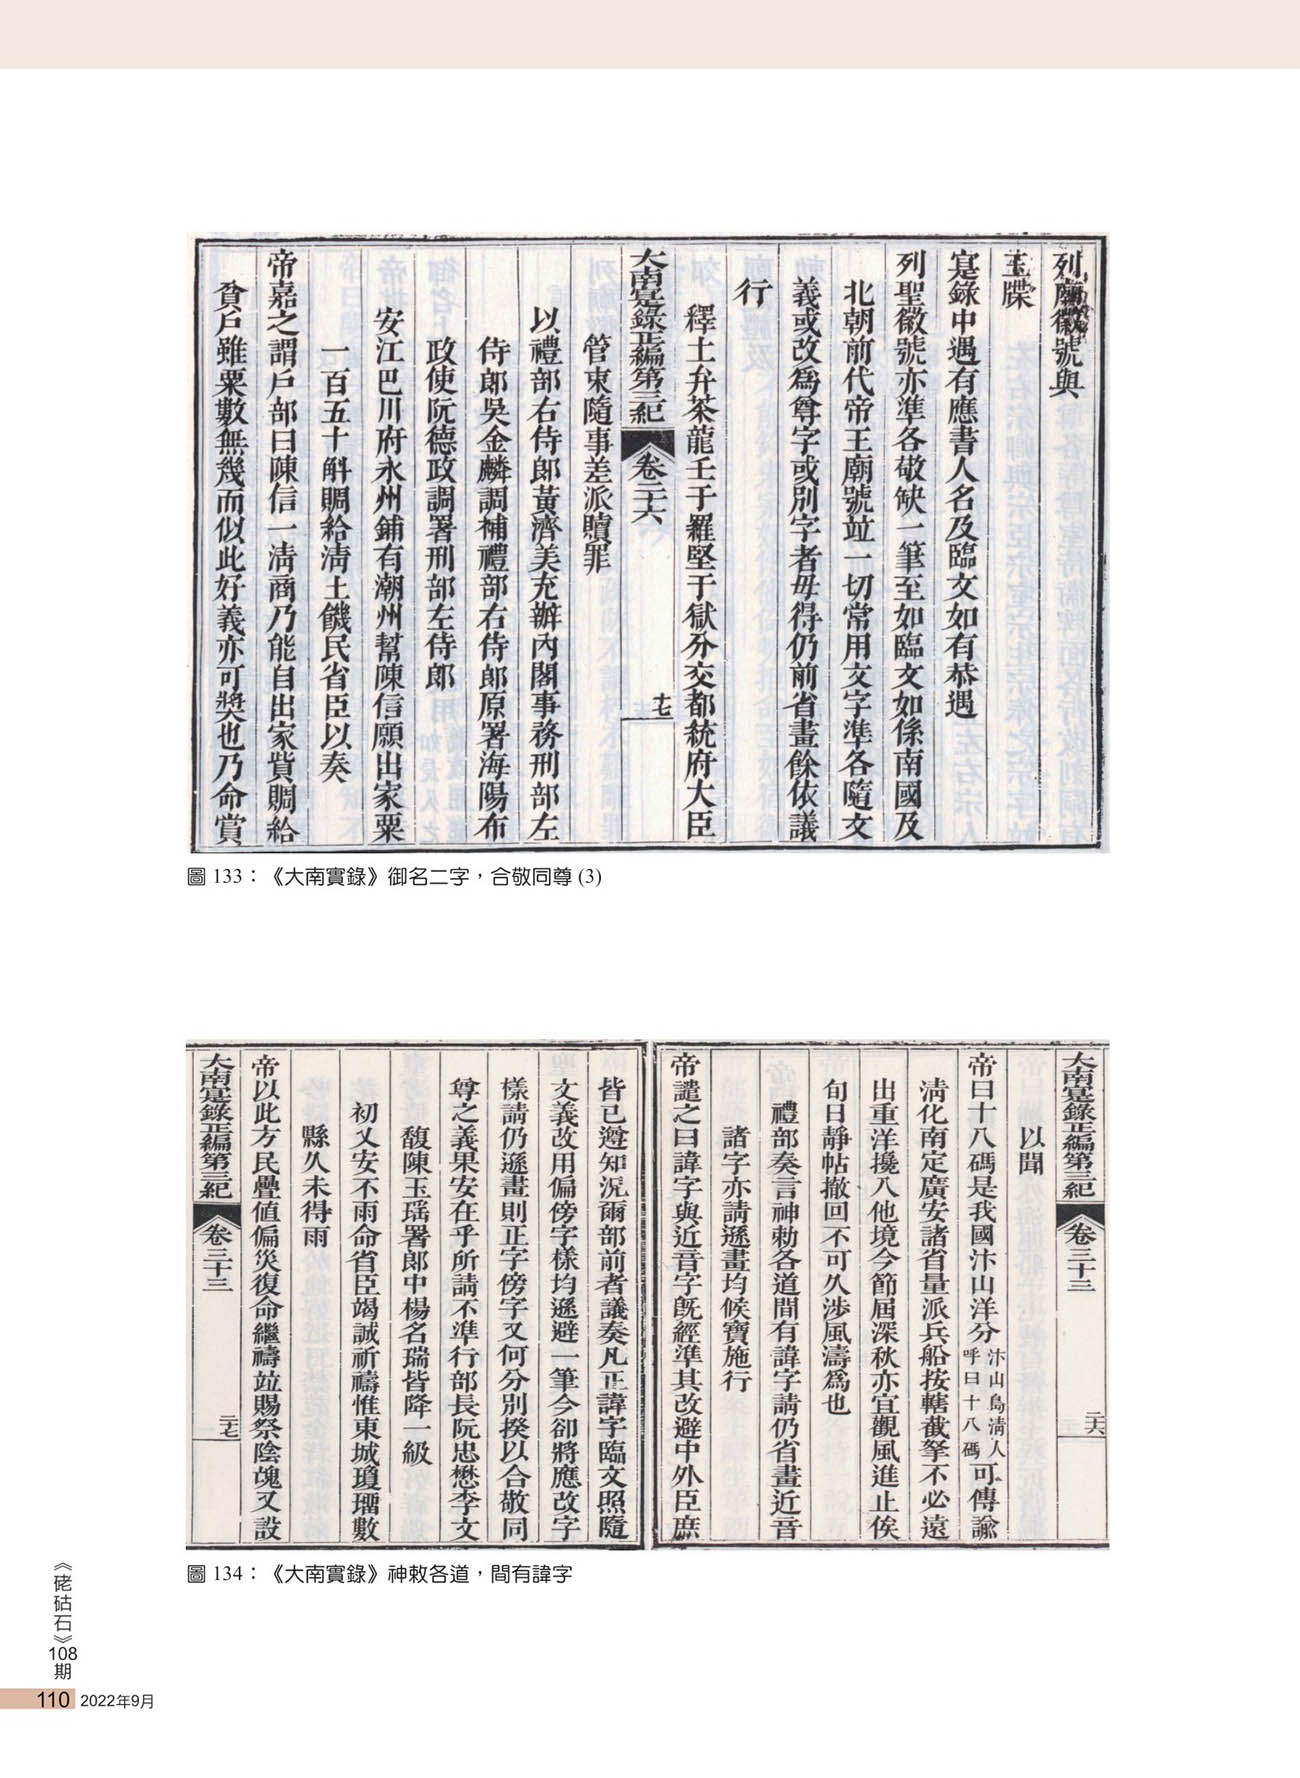 列廟徽號與
玉牒
寔錄中遇有應書人名及臨文如有恭遇
列聖徽號亦準各敬缺一筆至如臨文如係南國及
北朝前代帝王廟號竝一切常用文字準各隨文
義或改爲尊字或別字者毋得仍前省畫餘依議
行
釋土弁茶龍壬于羅堅于獄分交都統府大臣
大南寔錄正編第三紀 卷二十六 十七
管束隨事差派贖罪
以禮部右侍郎黃濟美充辦內閣事務刑部左
侍郎吳金麟調補禮部右侍郎原署海陽布
政使阮德政調署刑部左侍郎
安江巴川府永州鋪有潮州幫陳信願出家粟
一百五十斛賙給淸土饑民省臣以奏
帝嘉之謂戶部曰陳信一淸商乃能自出家貲賙給
貧戶雖粟數無幾而似此好義亦可獎也乃命賞
圖 133：《大南實錄》御名二字，合敬同尊 (3)
大南寔錄正編第三紀 卷三十三 二十六
以聞
帝曰十八碼是我國汴山洋分汴山島淸人呼曰十八碼可傳諭
淸化南定廣安諸省量派兵船按轄截拏不必遠
出重洋攙入他境今節屆深秋亦宜觀風進止俟
旬日靜帖撤回不可久涉風濤爲也
禮部奏言神勅各道間有諱字請仍省畫近音
諸字亦請遜畫均候寶施行
帝譴之曰諱字與近音字旣經準其改避中外臣庶
皆已遵知況爾部前者議奏凡正諱字臨文照隨
文義改用偏傍字樣均遜避一筆今卻將應改字
樣請仍遜畫則正字傍字又何分別揆以合敬同
尊之義果安在乎所請不準行部長阮忠懋李文
馥陳玉瑤署郎中楊名瑞皆降一級
初乂安不雨命省臣竭誠祈禱惟東城瓊瑠數
縣久未得雨
帝以此方民疊值偏災復命繼禱竝賜祭陰魂又設
大南寔錄正編第三紀 卷三十三 二十七
圖 134：《大南實錄》神敕各道，間有諱字
《硓𥑮石》108期
110 2022年9月